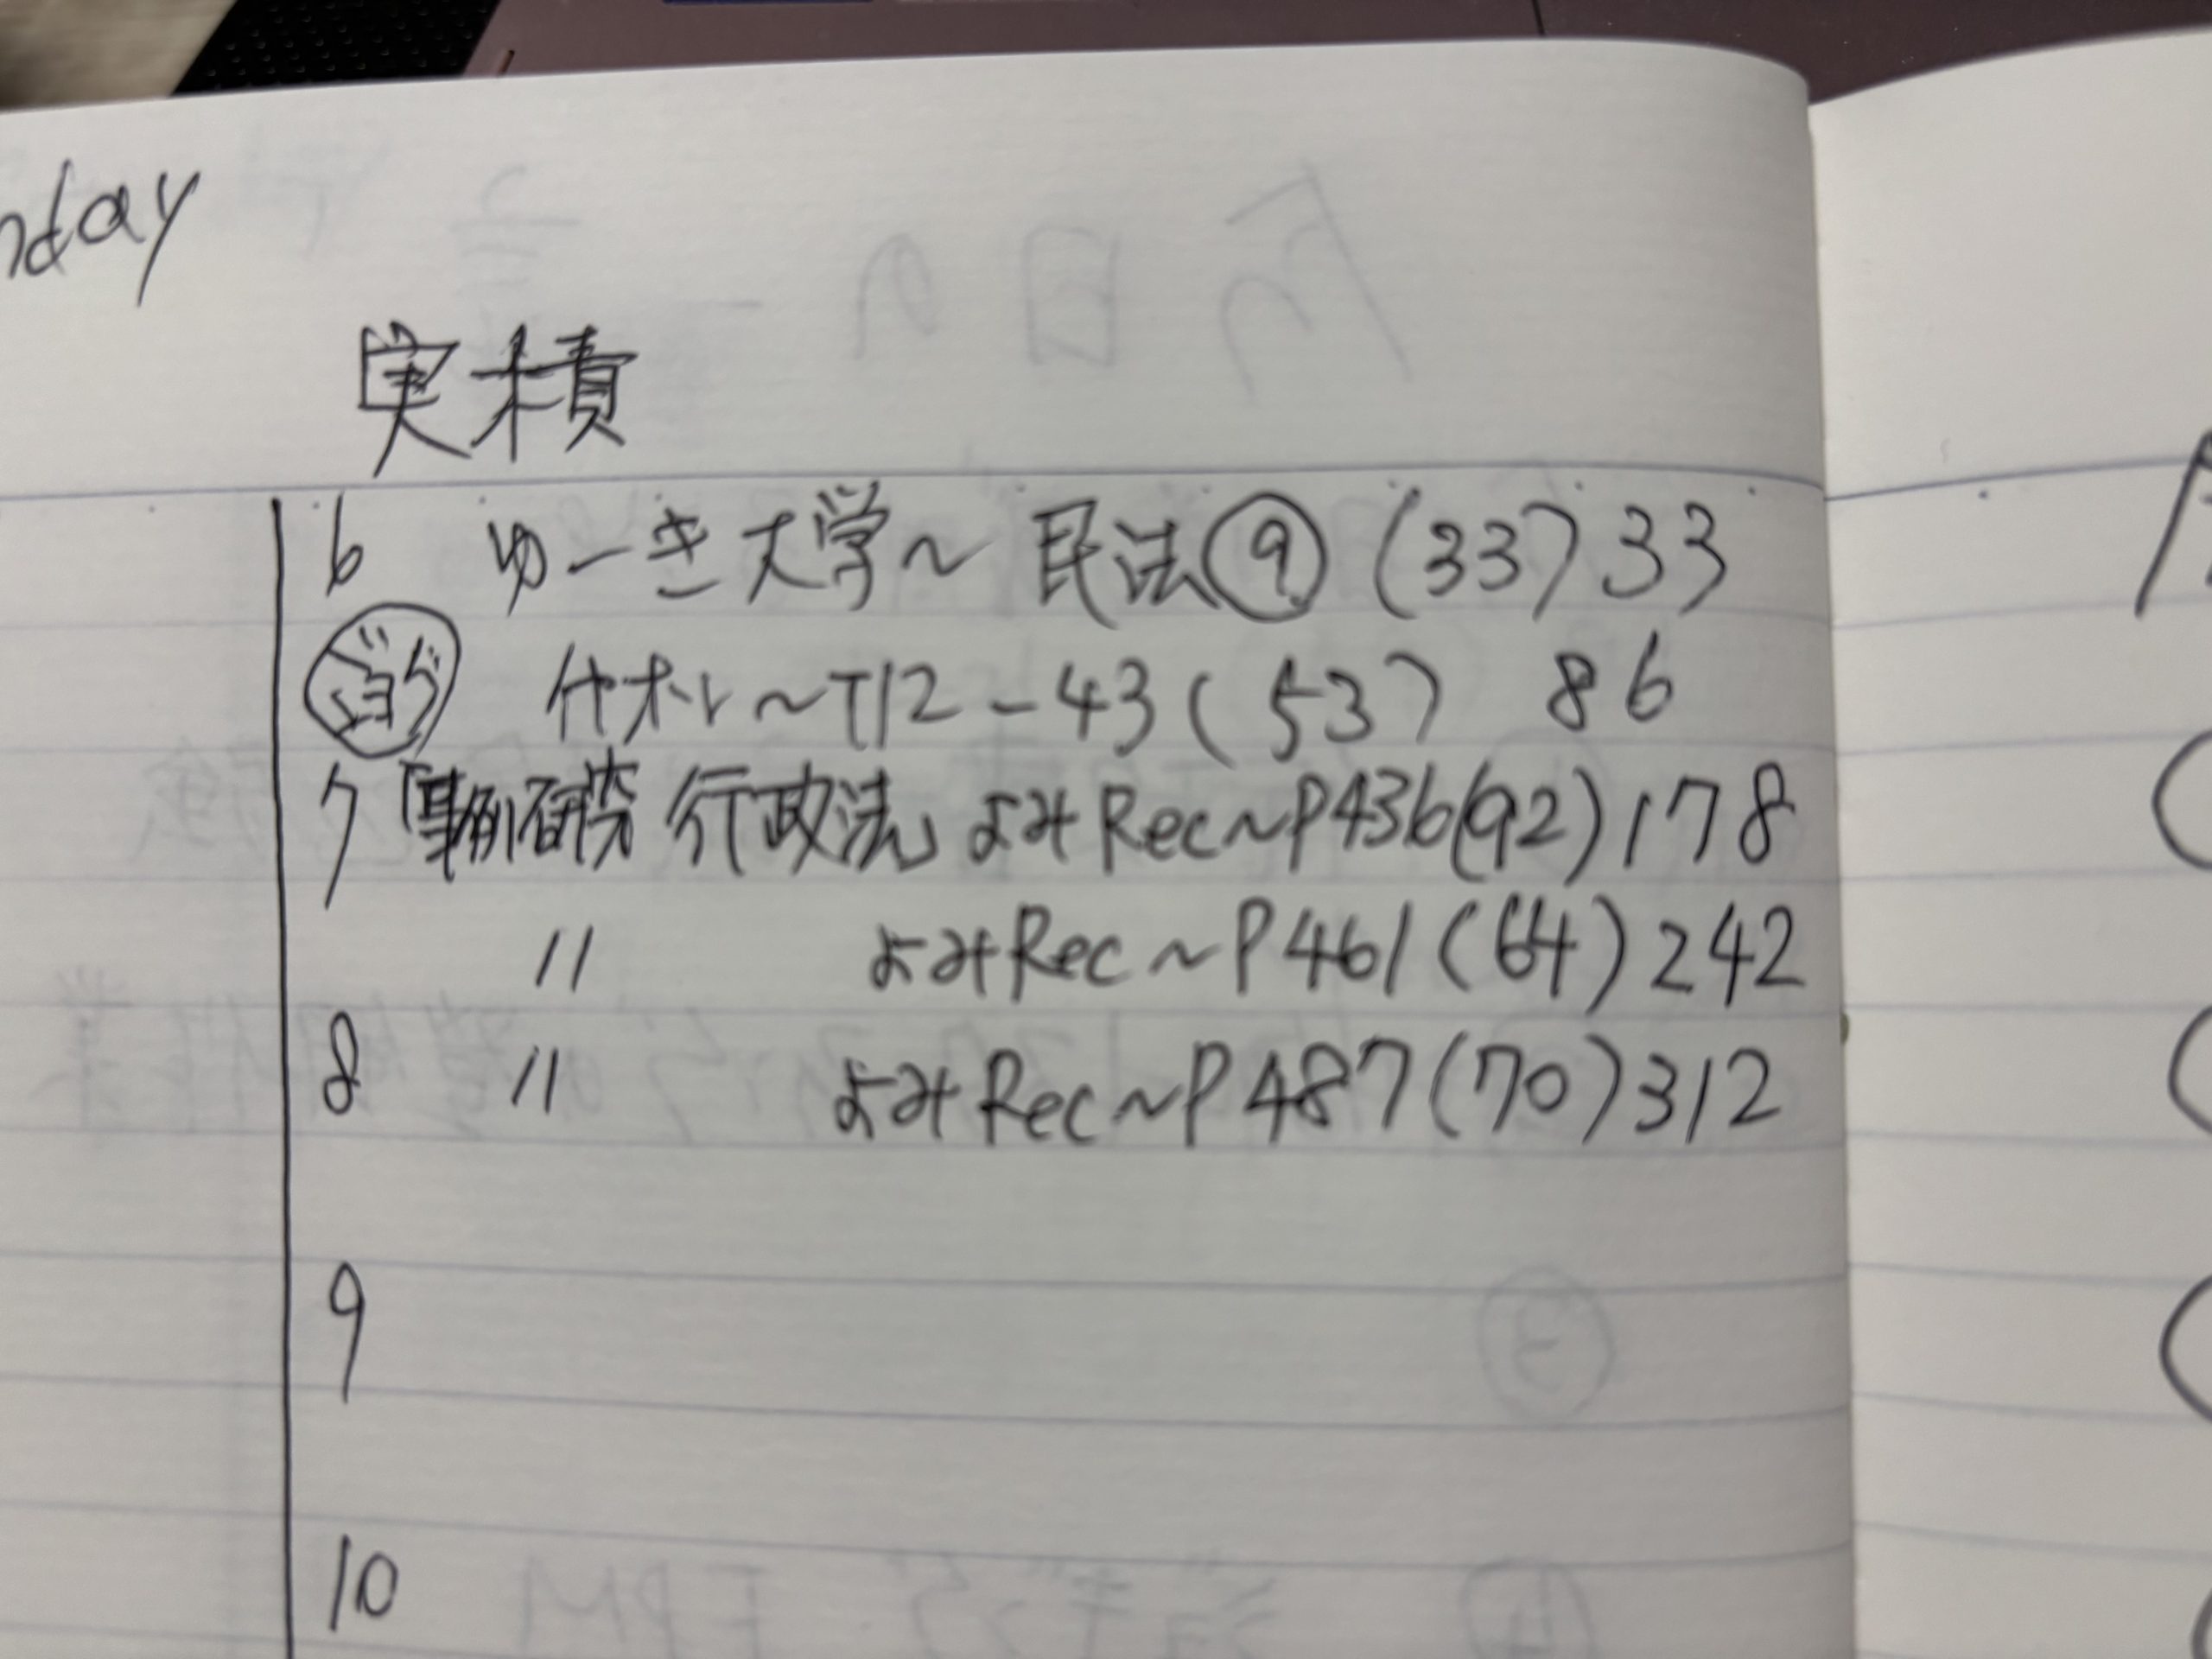 nday
実積
6 ゆーき大学〜民法⑨ (33) 33
ジョグ 〜T12-43(53) 86
7 「事例研究 行政法」よみRec〜P436(92)178
〃 よみRec〜P461(64)242
8 〃 よみRec〜P487(70)312
9
10